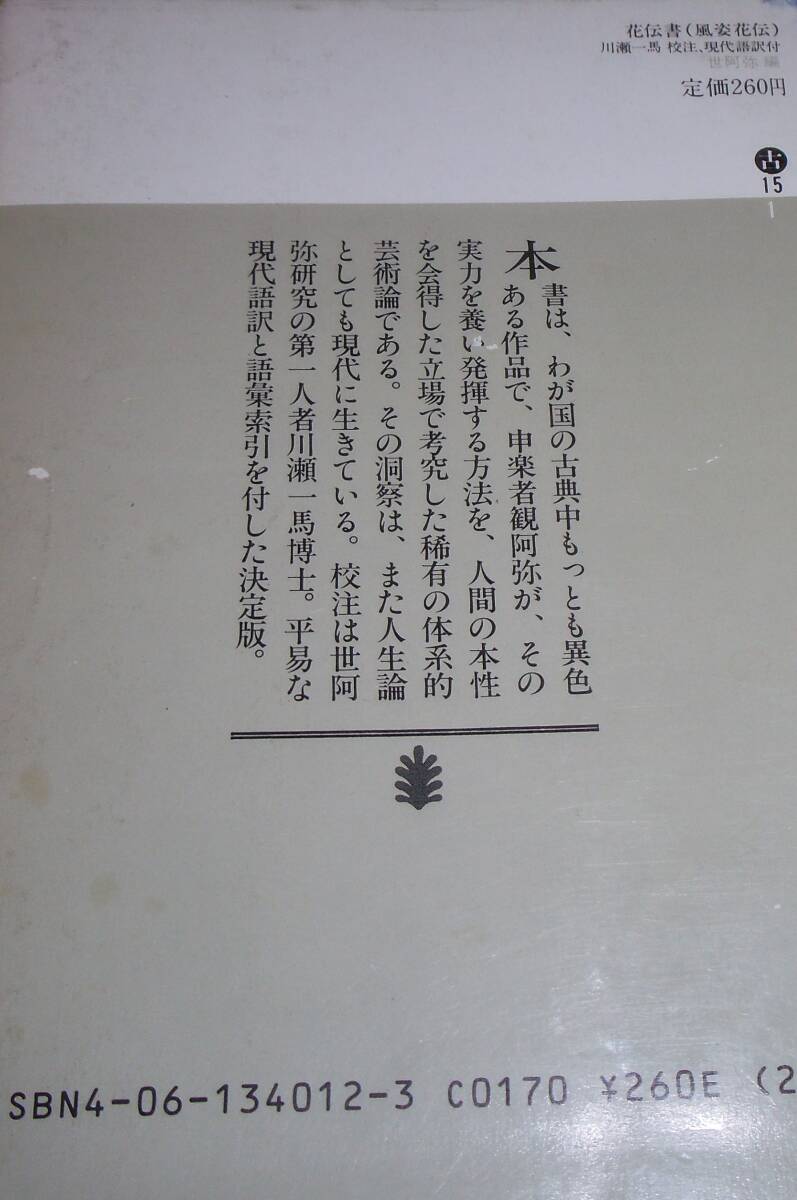 花伝書（風姿花伝）
川瀬一馬 校注、現代語訳付
世阿弥 編
定価260円
古
15
1
本書は、わが国の古典中もっとも異色
ある作品で、申楽者観阿弥が、その
実力を養い発揮する方法を、人間の本性
を会得した立場で考究した稀有の体系的
芸術論である。その洞察は、また人生論
としても現代に生きている。校注は世阿
弥研究の第一人者川瀬一馬博士。平易な
現代語訳と語彙索引を付した決定版。
SBN4-06-134012-3 C0170 ¥260E (2